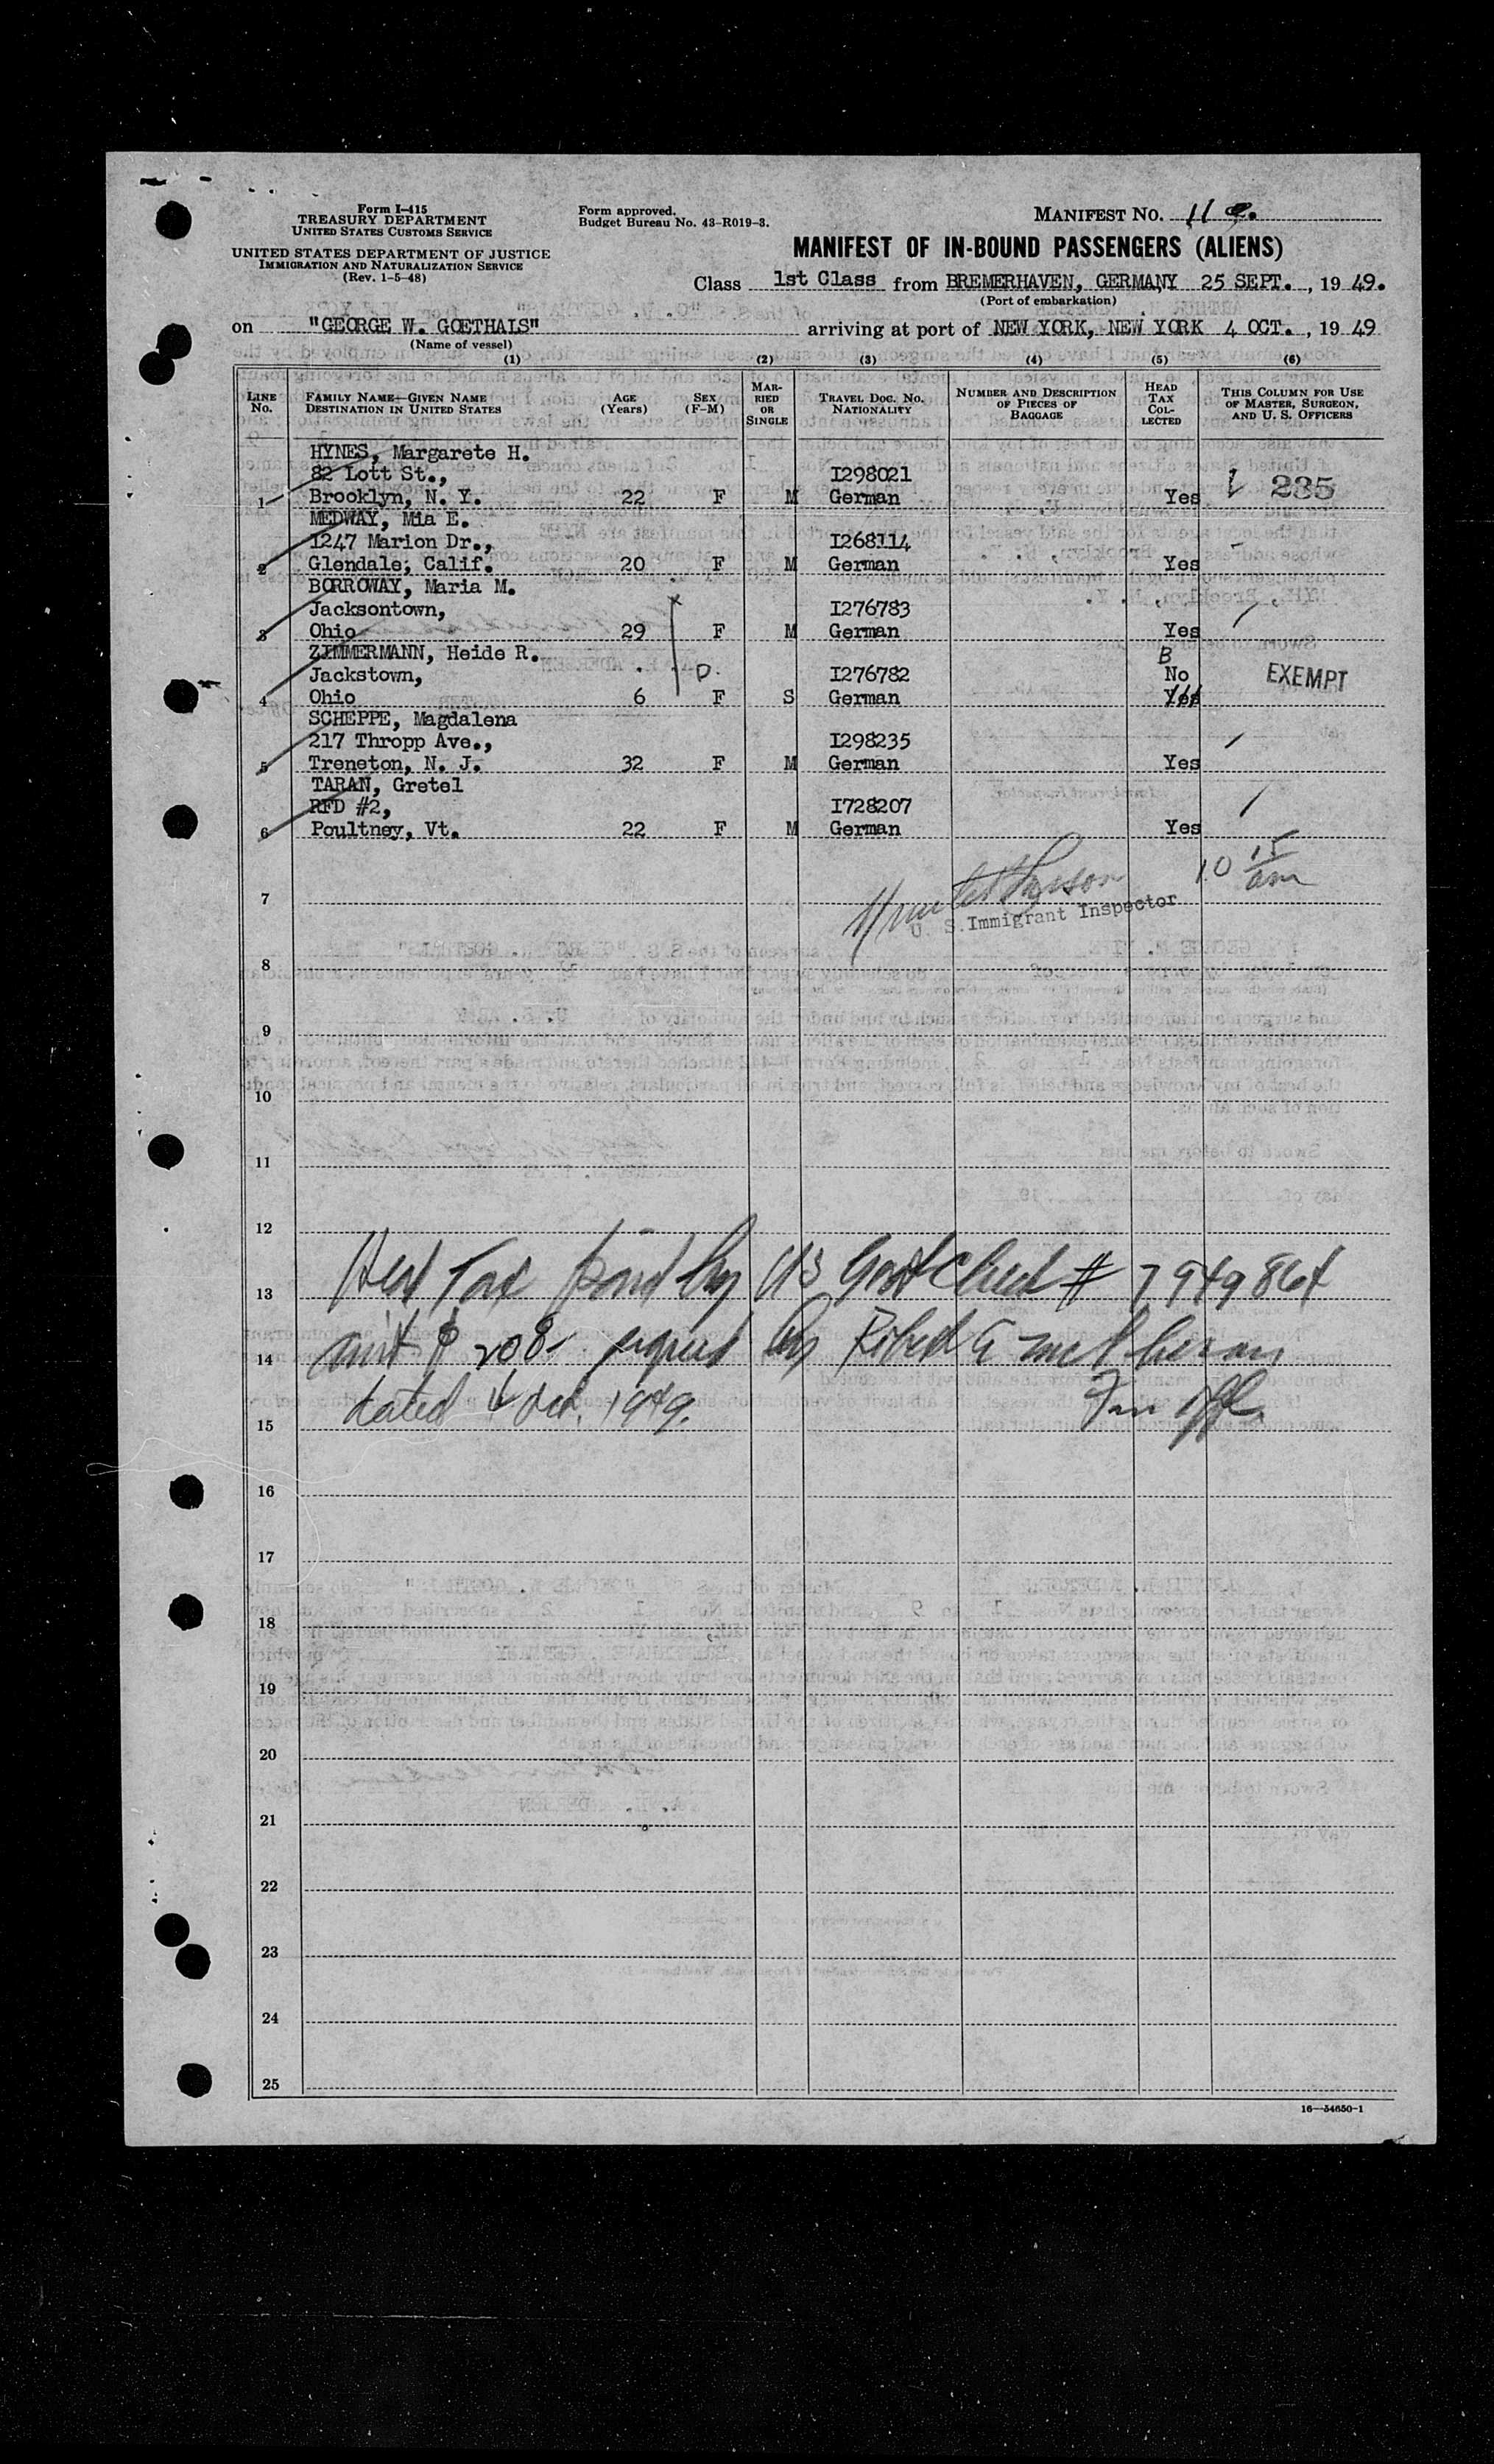 Form I-415
TREASURY DEPARTMENT
UNITED STATES CUSTOMS SERVICE
UNITED STATES DEPARTMENT OF JUSTICE
IMMIGRATION AND NATURALIZATION SERVICE
(Rev. 1-5-48)
Form approved.
Budget Bureau No. 43-R019-3.
MANIFEST NO. 11
MANIFEST OF IN-BOUND PASSENGERS (ALIENS)
Class 1st Class from BREMERHAVEN, GERMANY 25 SEPT., 19 49.
(Port of embarkation)
on "GEORGE W. GOETHALS" arriving at port of NEW YORK, NEW YORK 4 OCT., 19 49
(Name of vessel)
(1) (2) (3) (4) (5) (6)
LINE No. FAMILY NAME—GIVEN NAME DESTINATION IN UNITED STATES AGE (Years) SEX (F-M) MARRIED OR SINGLE TRAVEL DOC. NO. NATIONALITY NUMBER AND DESCRIPTION OF PIECES OF BAGGAGE HEAD TAX COLLECTED THIS COLUMN FOR USE OF MASTER, SURGEON, AND U. S. OFFICERS
HYNES, Margarete H.
82 Lott St., I298021
1 Brooklyn, N. Y. 22 F M German Yes 235
MEDWAY, Mia E.
1247 Marion Dr., I268114
2 Glendale, Calif. 20 F M German Yes
BORROWAY, Maria M.
Jacksontown, I276783
3 Ohio 29 F M German Yes
ZIMMERMANN, Heide R. B
Jackstown, D. I276782 No EXEMPT
4 Ohio 6 F S German Yes
SCHEPPE, Magdalena
217 Thropp Ave., I298235
5 Treneton, N. J. 32 F M German Yes
TARAN, Gretel
RFD #2, I728207
6 Poultney, Vt. 22 F M German Yes
10 15 am
7
U. S. Immigrant Inspector
8
9
10
11
12
13 Head Tax paid by US Govt Check # 7949864
14 amt $ 208- signed by Robert
15 dated 4 Oct. 1949.
16
17
18
19
20
21
22
23
24
25
16—54650-1